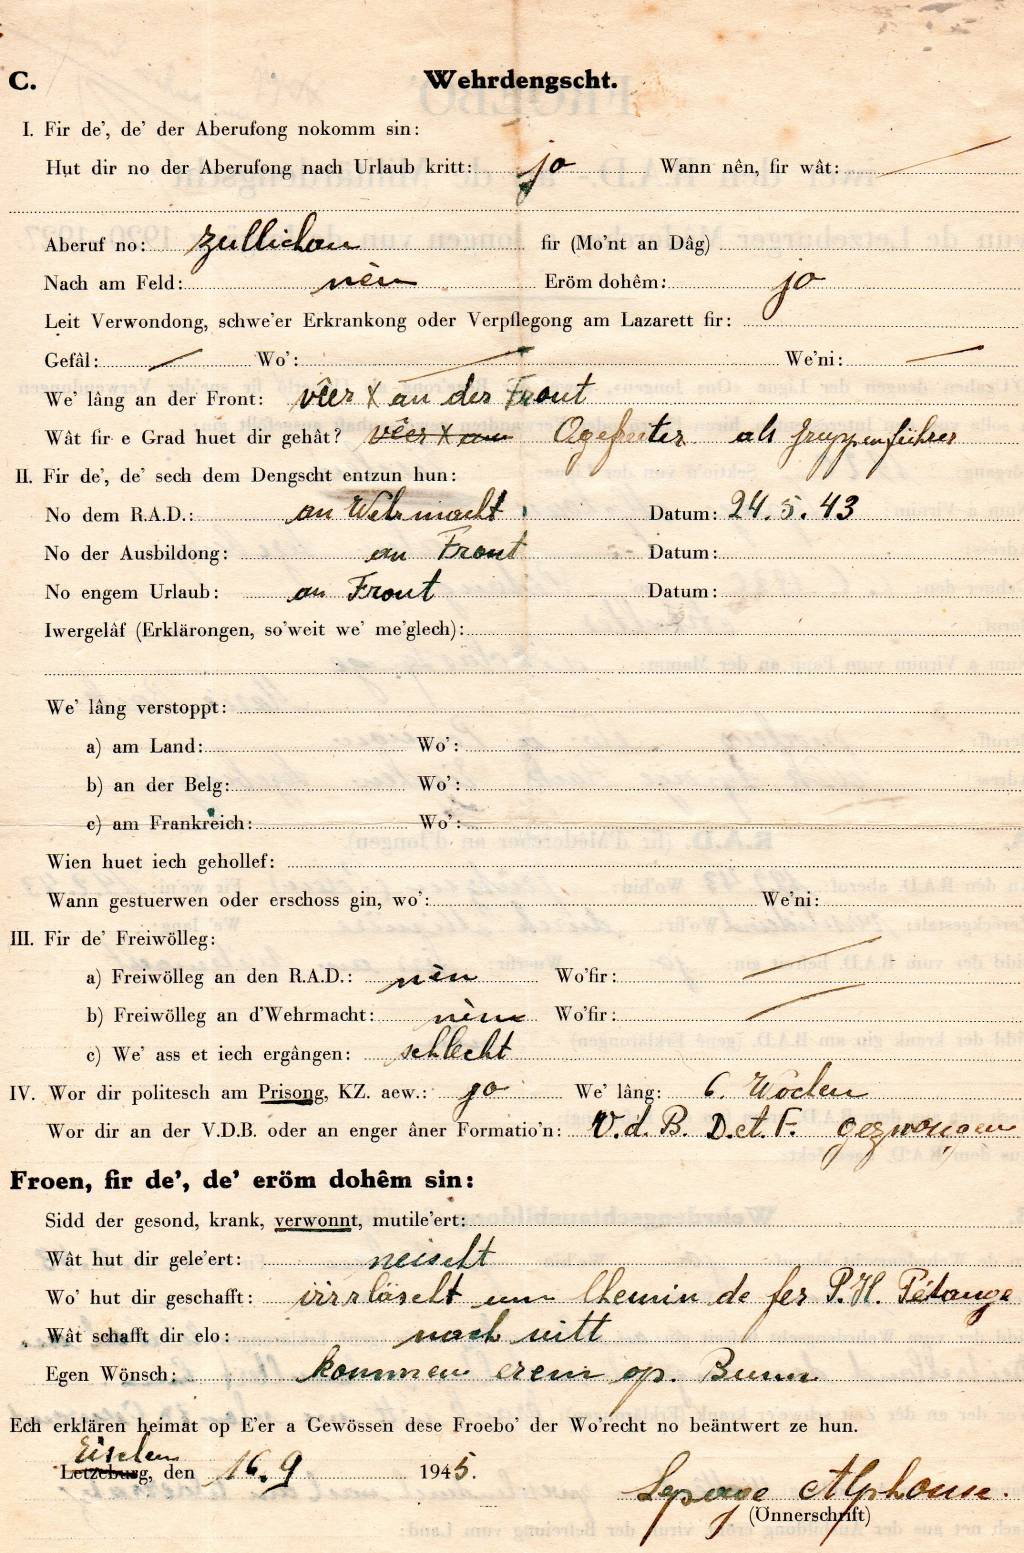 C. Wehrdengscht.
I. Fir de', de' der Aberufong nokomm sin:
Hut dir no der Aberufong nach Urlaub kritt: jo Wann nên, fir wât:
Aberuf no: Züllichau fir (Mo'nt an Dâg)
Nach am Feld: nèn Eröm dohêm: jo
Leit Verwondong, schwe'er Erkrankong oder Verpflegong am Lazarett fir:
Gefâl: — Wo': — We'ni: —
We' lâng an der Front: vêer X an der Front
Wât fir e Grad huet dir gehât? vêer X an Ogefreiter als Gruppenführer
II. Fir de', de' sech dem Dengscht entzun hun:
No dem R.A.D.: an Wehrmacht Datum: 24.5.43
No der Ausbildong: an Front Datum:
No engem Urlaub: an Front Datum:
Iwergelâf (Erklärongen, so'weit we' me'glech):
We' lâng verstoppt:
a) am Land: Wo':
b) an der Belg: Wo':
c) am Frankreich: Wo':
Wien huet iech gehollef:
Wann gestuerwen oder erschoss gin, wo': We'ni:
III. Fir de' Freiwölleg:
a) Freiwölleg an den R.A.D.: nèn Wo'fir: —
b) Freiwölleg an d'Wehrmacht: nèn Wo'fir: —
c) We' ass et iech ergângen: schlecht
IV. Wor dir politesch am Prisong, KZ. aew.: jo We' lâng: 6. Wochen
Wor dir an der V.D.B. oder an enger âner Formatio'n: V.d.B. D.et.F. gezwongen
Froen, fir de', de' eröm dohêm sin:
Sidd der gesond, krank, verwonnt, mutile'ert:
Wât hut dir gele'ert: neischt
Wo' hut dir geschafft: virrläscht um Chemin de fer P.H. Pétange
Wât schafft dir elo: nach nitt
Egen Wönsch: kommen erem op. Bunn
Ech erklären heimat op E'er a Gewössen dese Froebo' der Wo'recht no beäntwert ze hun.
Eischen
Letzeburg, den 16.9 1945.
Lepage Alphonse.
(Onnerschrift)